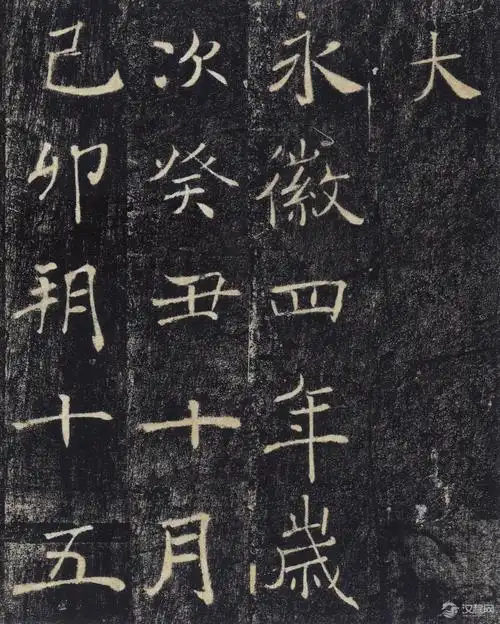 大
永徽四年歲
次癸丑十月
己卯朔十五
汉程网